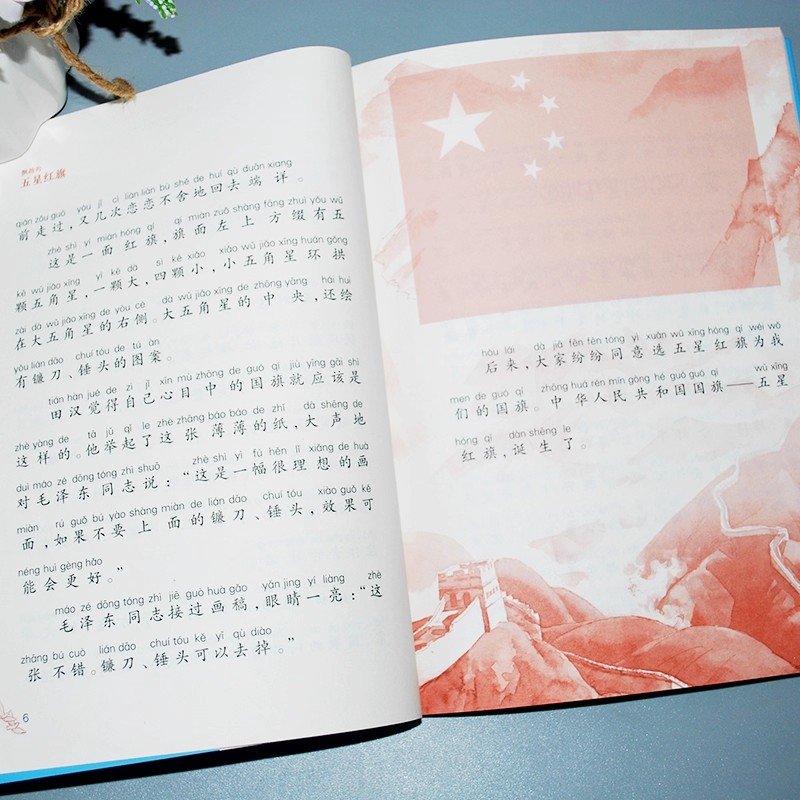 飘扬的
五星红旗
qián zǒu guò yòu jǐ cì liàn liàn bù shě de huí qù duān xiáng
前走过，又几次恋恋不舍地回去端详。
zhè shì yí miàn hóng qí qí miàn zuǒ shàng fāng zhuì yǒu wǔ
这是一面红旗，旗面左上方缀有五
kē wǔ jiǎo xīng yì kē dà sì kē xiǎo xiǎo wǔ jiǎo xīng huán gǒng
颗五角星，一颗大，四颗小，小五角星环拱
zài dà wǔ jiǎo xīng de yòu cè dà wǔ jiǎo xīng de zhōng yāng hái huì
在大五角星的右侧。大五角星的中央，还绘
yǒu lián dāo chuí tóu de tú àn
有镰刀、锤头的图案。
tián hàn jué de zì jǐ xīn mù zhōng de guó qí jiù yīng gāi shì
田汉觉得自己心目中的国旗就应该是
zhè yàng de tā jǔ qǐ le zhè zhāng báo báo de zhǐ dà shēng de
这样的。他举起了这张薄薄的纸，大声地
duì máo zé dōng tóng zhì shuō zhè shì yì fú hěn lǐ xiǎng de huà
对毛泽东同志说：“这是一幅很理想的画
miàn rú guǒ bú yào shàng miàn de lián dāo chuí tóu xiào guǒ kě
面，如果不要上面的镰刀、锤头，效果可
néng huì gèng hǎo
能会更好。”
máo zé dōng tóng zhì jiē guò huà gǎo yǎn jing yí liàng zhè
毛泽东同志接过画稿，眼睛一亮：“这
zhāng bú cuò lián dāo chuí tóu kě yǐ qù diào
张不错。镰刀、锤头可以去掉。”
6
hòu lái dà jiā fēn fēn tóng yì xuǎn wǔ xīng hóng qí wéi wǒ
后来，大家纷纷同意选五星红旗为我
men de guó qí zhōng huá rén mín gòng hé guó guó qí wǔ xīng
们的国旗。中华人民共和国国旗——五星
hóng qí dàn shēng le
红旗，诞生了。